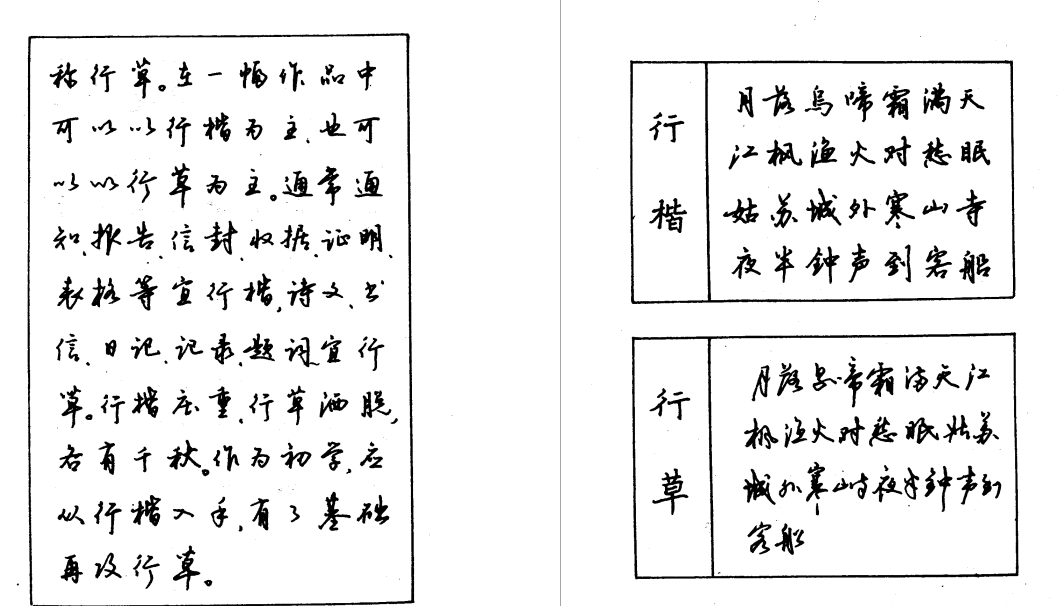 称行草。在一幅作品中
可以以行楷为主,也可
以以行草为主。通常通
知、报告、信封、收据、证明、
表格等宜行楷,诗文、书
信、日记、记录、题词宜行
草。行楷庄重,行草洒脱,
各有千秋。作为初学,应
从行楷入手,有了基础
再攻行草。
行楷
月落乌啼霜满天
江枫渔火对愁眠
姑苏城外寒山寺
夜半钟声到客船
行草
月落乌啼霜满天江
枫渔火对愁眠姑苏
城外寒山寺夜半钟声到
客船